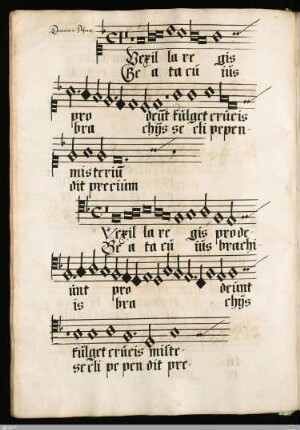 Vexil la re gis
Be a ta cũ ius
pro deũt fulget crucis
bra chijs se cli pepen-
misteriũ
dit precium
Vexil la re gis prode-
Be a ta cũ ius brachi-
unt pro deunt
is bra chijs
fulget crucis miste-
se cli pe pen dit pre-